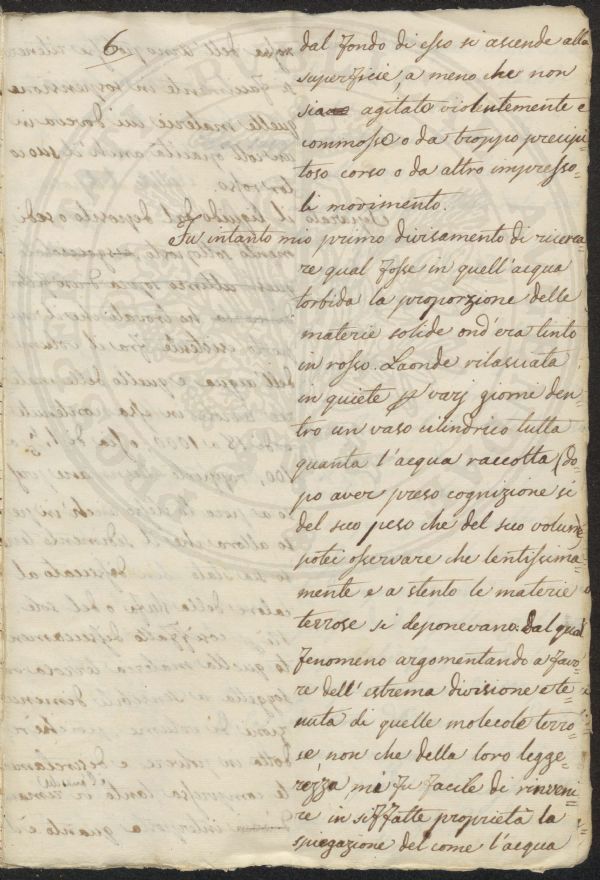 6
dal fondo di esso si ascende alla
superficie, a meno che non
sia agitato violentemente e
commosso o da troppo precipi
toso corso o da altro impresso=
li movimento.
Fu intanto mio primo divisamento di ricerca=
re qual fosse in quell'acqua
torbida la proporzione delle
materie solide ond'era tinto
in rosso. Laonde rilasciata
in quiete p varj giorni den=
tro un vaso cilindrico tutta
quanta l'acqua raccolta (do=
po aver preso cognizione sì
del suo peso che del suo volume
potei osservare che lentissima=
mente e a stento le materie
terrose si deponevano. Dal qual
fenomeno argomentando a favo=
re dell'estrema divisione e te=
nuta di quelle molecole terro=
se, non che della loro legge=
rezza, mi fu facile di rinveni=
re in siffatte proprietà la
spiegazione del come l'acqua